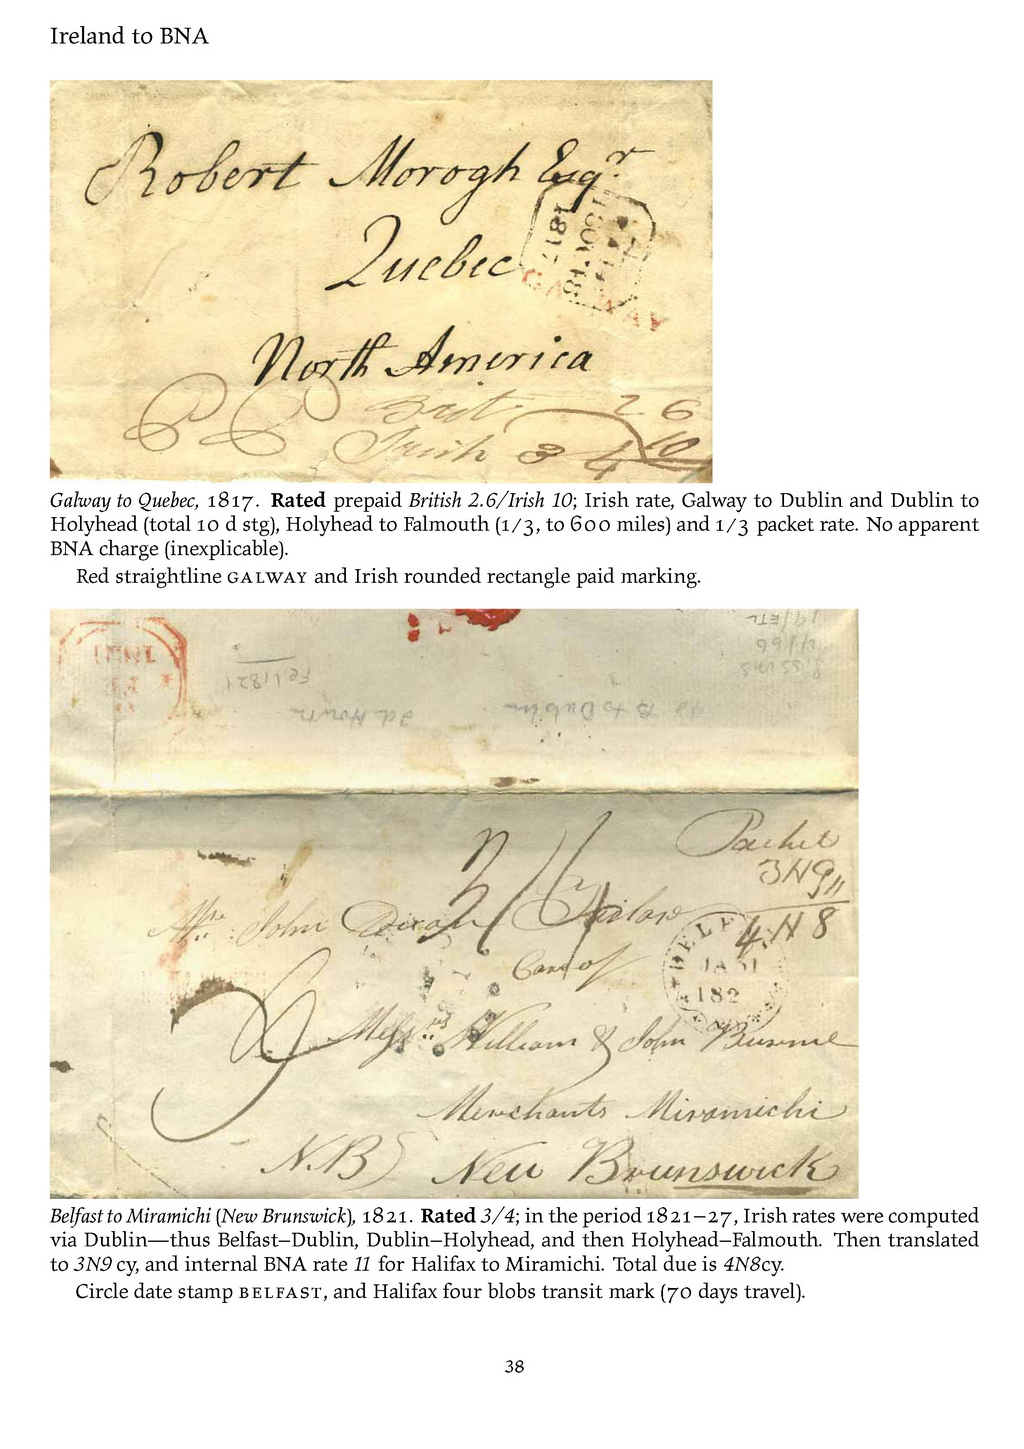 Ireland to BNA
Robert Morogh Esqr
1817
Quebec
GALWAY
North America
Brit 2 6
Irish 3 4 10
Galway to Quebec, 1817. Rated prepaid British 2.6/Irish 10; Irish rate, Galway to Dublin and Dublin to
Holyhead (total 10 d stg), Holyhead to Falmouth (1/3, to 600 miles) and 1/3 packet rate. No apparent
BNA charge (inexplicable).
Red straightline GALWAY and Irish rounded rectangle paid marking.
Packet
3N9
11
4N8
3/4
John Dixon
Care of
BELFAST
JA 31
182
Messrs William & John
Merchants Miramichi
N.B) New Brunswick
Belfast to Miramichi (New Brunswick), 1821. Rated 3/4; in the period 1821–27, Irish rates were computed
via Dublin—thus Belfast–Dublin, Dublin–Holyhead, and then Holyhead–Falmouth. Then translated
to 3N9 cy, and internal BNA rate 11 for Halifax to Miramichi. Total due is 4N8cy.
Circle date stamp BELFAST, and Halifax four blobs transit mark (70 days travel).
38